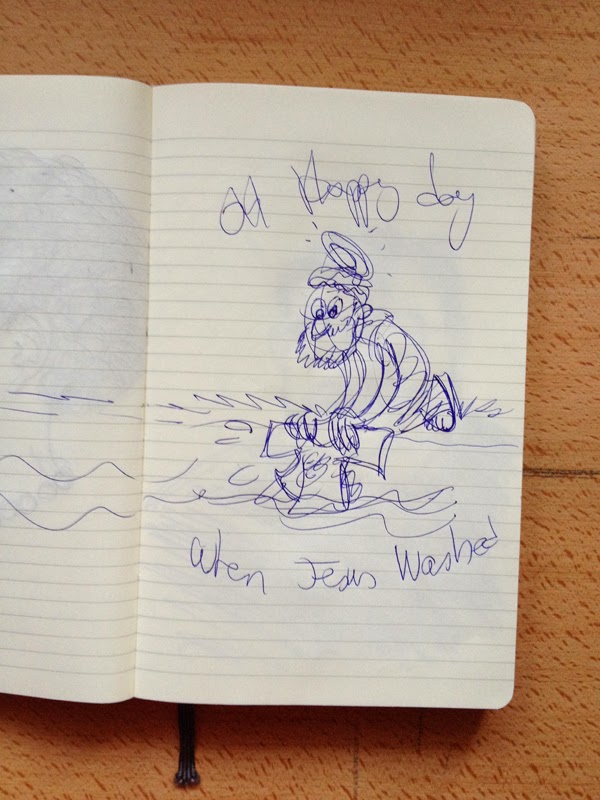 Oh Happy day
When Jesus Washed